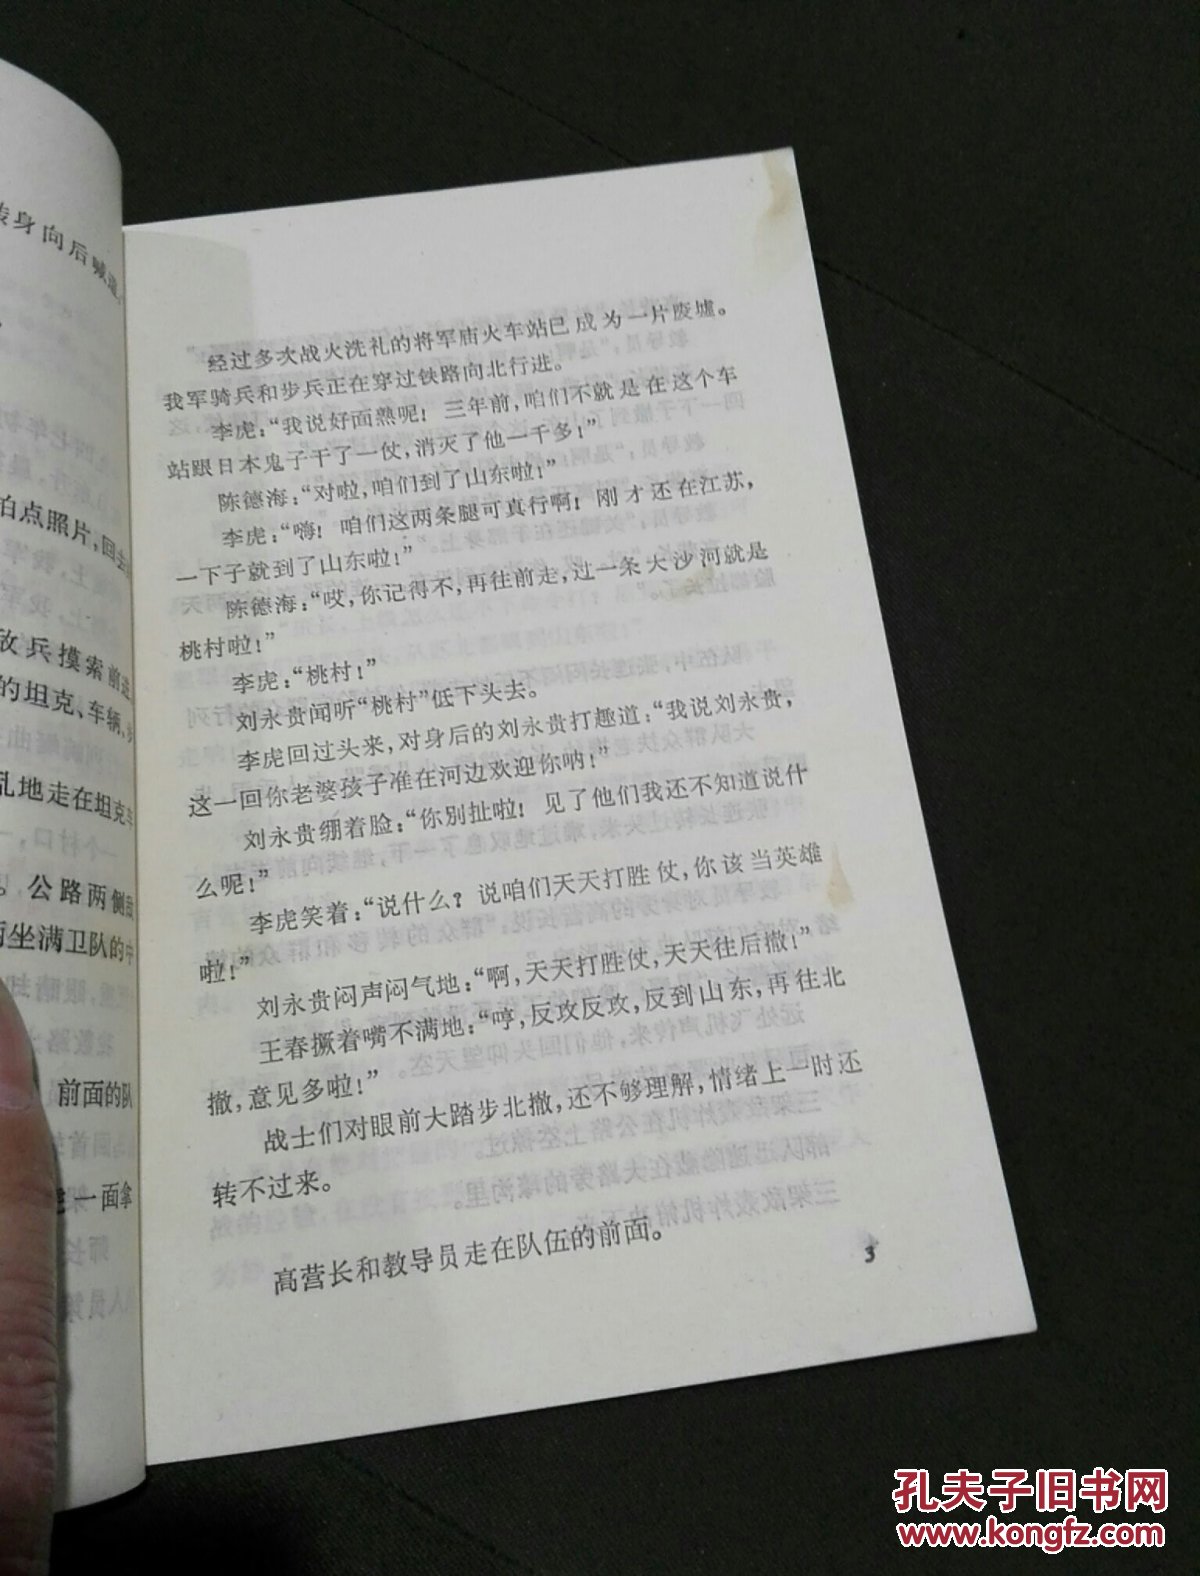 身向后喊道
拍点照片，回去
敌兵摸索前进
的坦克、车辆、
乱地走在坦克车
。公路两侧敌
坐满卫队的中
前面的队
一面拿
经过多次战火洗礼的将军庙火车站已成为一片废墟。
我军骑兵和步兵正在穿过铁路向北行进。
李虎：“我说好面熟呢！三年前，咱们不就是在这个车
站跟日本鬼子干了一仗，消灭了他一千多！”
陈德海：“对啦，咱们到了山东啦！”
李虎：“嗨！咱们这两条腿可真行啊！刚才还在江苏，
一下子就到了山东啦！”
陈德海：“哎，你记得不，再往前走，过一条大沙河就是
桃村啦！”
李虎：“桃村！”
刘永贵闻听“桃村”低下头去。
李虎回过头来，对身后的刘永贵打趣道：“我说刘永贵，
这一回你老婆孩子准在河边欢迎你呐！”
刘永贵绷着脸：“你别扯啦！见了他们我还不知道说什
么呢！”
李虎笑着：“说什么？说咱们天天打胜仗，你该当英雄
啦！”
刘永贵闷声闷气地：“啊，天天打胜仗，天天往后撤！”
王春撅着嘴不满地：“哼，反攻反攻，反到山东，再往北
撤，意见多啦！”
战士们对眼前大踏步北撤，还不够理解，情绪上一时还
转不过来。
高营长和教导员走在队伍的前面。
3
孔夫子旧书网
www.kongfz.com